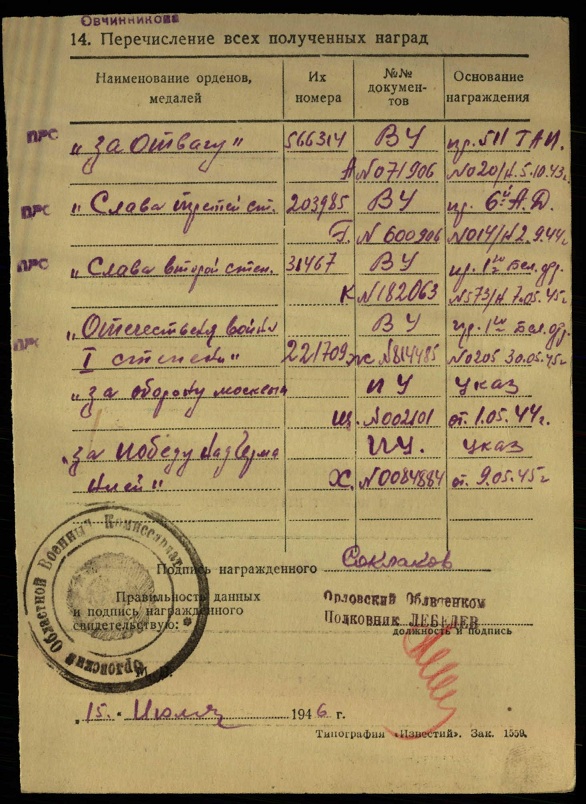 Овчинникова
14. Перечисление всех полученных наград
Наименование орденов, медалей
Их номера
№№ докумен-тов
Основание награждения
ПРС „За Отвагу" 566314 ВУ пр. 511 ТАП.
А №071906 №020/н. 5.10.43г.
ПРС „Слава третей ст. 203985 ВУ пр. 6й А.Д.
Г. № 600906 №014/н 2.9.44г
ПРС „Слава второй степ. 31467 ВУ пр. 1го Бел.фр.
К №182063 №573/н 7.05.45г
ПРС „Отечествен войны ВУ пр. 1го Бел.фр.
I степени" 221709 №814485 №0205 30.05.45г
„За оборону москвы ПУ указ
Щ. №002101 от. 1.05.44г.
„За Победу над Герма ПУ. указ
нией" Х. №0084884 от. 9.05.45г
Подпись награжденного Соклаков
Правильность данных
и подпись награжденного
свидетельствую:
Орловский Облвоенком
Полковник ЛЕБЕДЕВ
должность и подпись
Орловский Областной Военный Комиссариат
М. П.
„15." Июля 1946 г.
Типография «Известий». Зак. 1559.